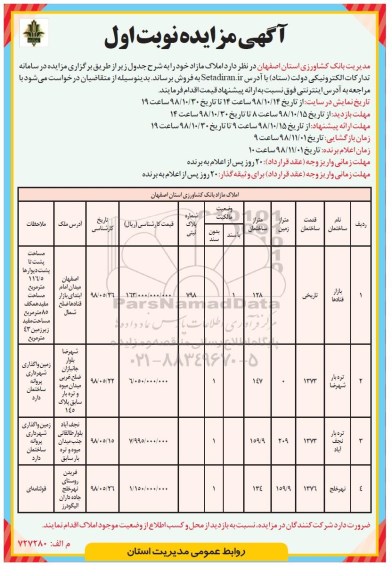 آگهی مزایده نوبت اول
مدیریت بانک کشاورزی استان اصفهان در نظر دارد املاک مازاد خود را به شرح جدول زیر از طریق برگزاری مزایده در سامانه
تدارکات الکترونیکی دولت (ستاد) با آدرس Setadiran.ir به فروش برساند. بدینوسیله از متقاضیان درخواست می‌شود با
مراجعه به آدرس اینترنتی فوق نسبت به ارائه پیشنهاد قیمت اقدام فرمایند.
تاریخ نمایش در سایت: از تاریخ ۹۸/۱۰/۱۴ ساعت ۱۴ تا تاریخ ۹۸/۱۰/۳۰ ساعت ۱۹
مهلت بازدید: از تاریخ ۹۸/۱۰/۱۵ ساعت ۸ تا تاریخ ۹۸/۱۰/۳۰ ساعت ۱۴
مهلت ارائه پیشنهاد: از تاریخ ۹۸/۱۰/۱۵ ساعت ۹ تا تاریخ ۹۸/۱۰/۳۰ ساعت ۱۹
زمان بازگشایی: تاریخ ۹۸/۱۱/۰۱ ساعت ۹
زمان اعلام برنده: تاریخ ۹۸/۱۱/۰۱ ساعت ۱۰
مهلت زمانی واریز وجه (عقد قرارداد): ۲۰ روز پس از اعلام به برنده
مهلت زمانی واریز وجه (عقد قرارداد) برای وثیقه گذار: ۲۰ روز پس از اعلام به برنده
املاک مازاد بانک کشاورزی استان اصفهان
ردیف نام ساختمان قدمت ساختمان متراژ زمین متراژ ساختمان وضعیت مالکیت با سند بدون سند شماره پلاک ثبتی قیمت کارشناسی (ریال) تاریخ کارشناسی آدرس ملک ملاحظات
۱ بازار قنادها تاریخی ۱۲۸ ۱ ۷۹۸ ۱۶۳/۰۰۰/۰۰۰/۰۰۰ ۹۸/۰۵/۲۶ اصفهان میدان امام ابتدای بازار قنادها ضلع شمال مساحت پشت تا پشت دیوارها ۱۱۶/۵ مترمربع مساحت مفید همکف ۸۵ مترمربع مساحت مفید زیرزمین ۴۳ مترمربع
۲ تره بار شهرضا ۱۳۷۳ ۰ ۱۴۷ ۱ ۶/۰۵۰/۰۰۰/۰۰۰ ۹۸/۰۵/۲۲ شهرضا بلوار جانبازان ضلع غربی میدان میوه و تره بار سابق پلاک ۱۴۵ زمین واگذاری شهرداری پروانه ساختمان دارد
۳ تره بار نجف آباد ۱۳۷۳ ۲۰۹ ۱۵۹/۹ ۱ ۷/۹۹۵/۰۰۰/۰۰۰ ۹۸/۰۵/۱۵ نجف آباد بلوار طالقانی جنب میدان میوه و تره بار سابق زمین واگذاری شهرداری پروانه ساختمان دارد
۴ نهرخلج ۱۳۷۶ ۱۵۹/۹ ۱۳۴ ۱ ۱/۱۵۰/۰۰۰/۰۰۰ ۹۸/۰۵/۲۶ فریدن روستای نهرخلج جاده داران الیگودرز قولنامه‌ای
ParsNamadData
۰۲۱-۸۸۳۴۹۶۷۰-۵
ضرورت دارد شرکت کنندگان در مزایده، نسبت به بازدید از محل و کسب اطلاع از وضعیت موجود املاک اقدام نمایند.
م الف: ۷۲۷۲۸۰
روابط عمومی مدیریت استان